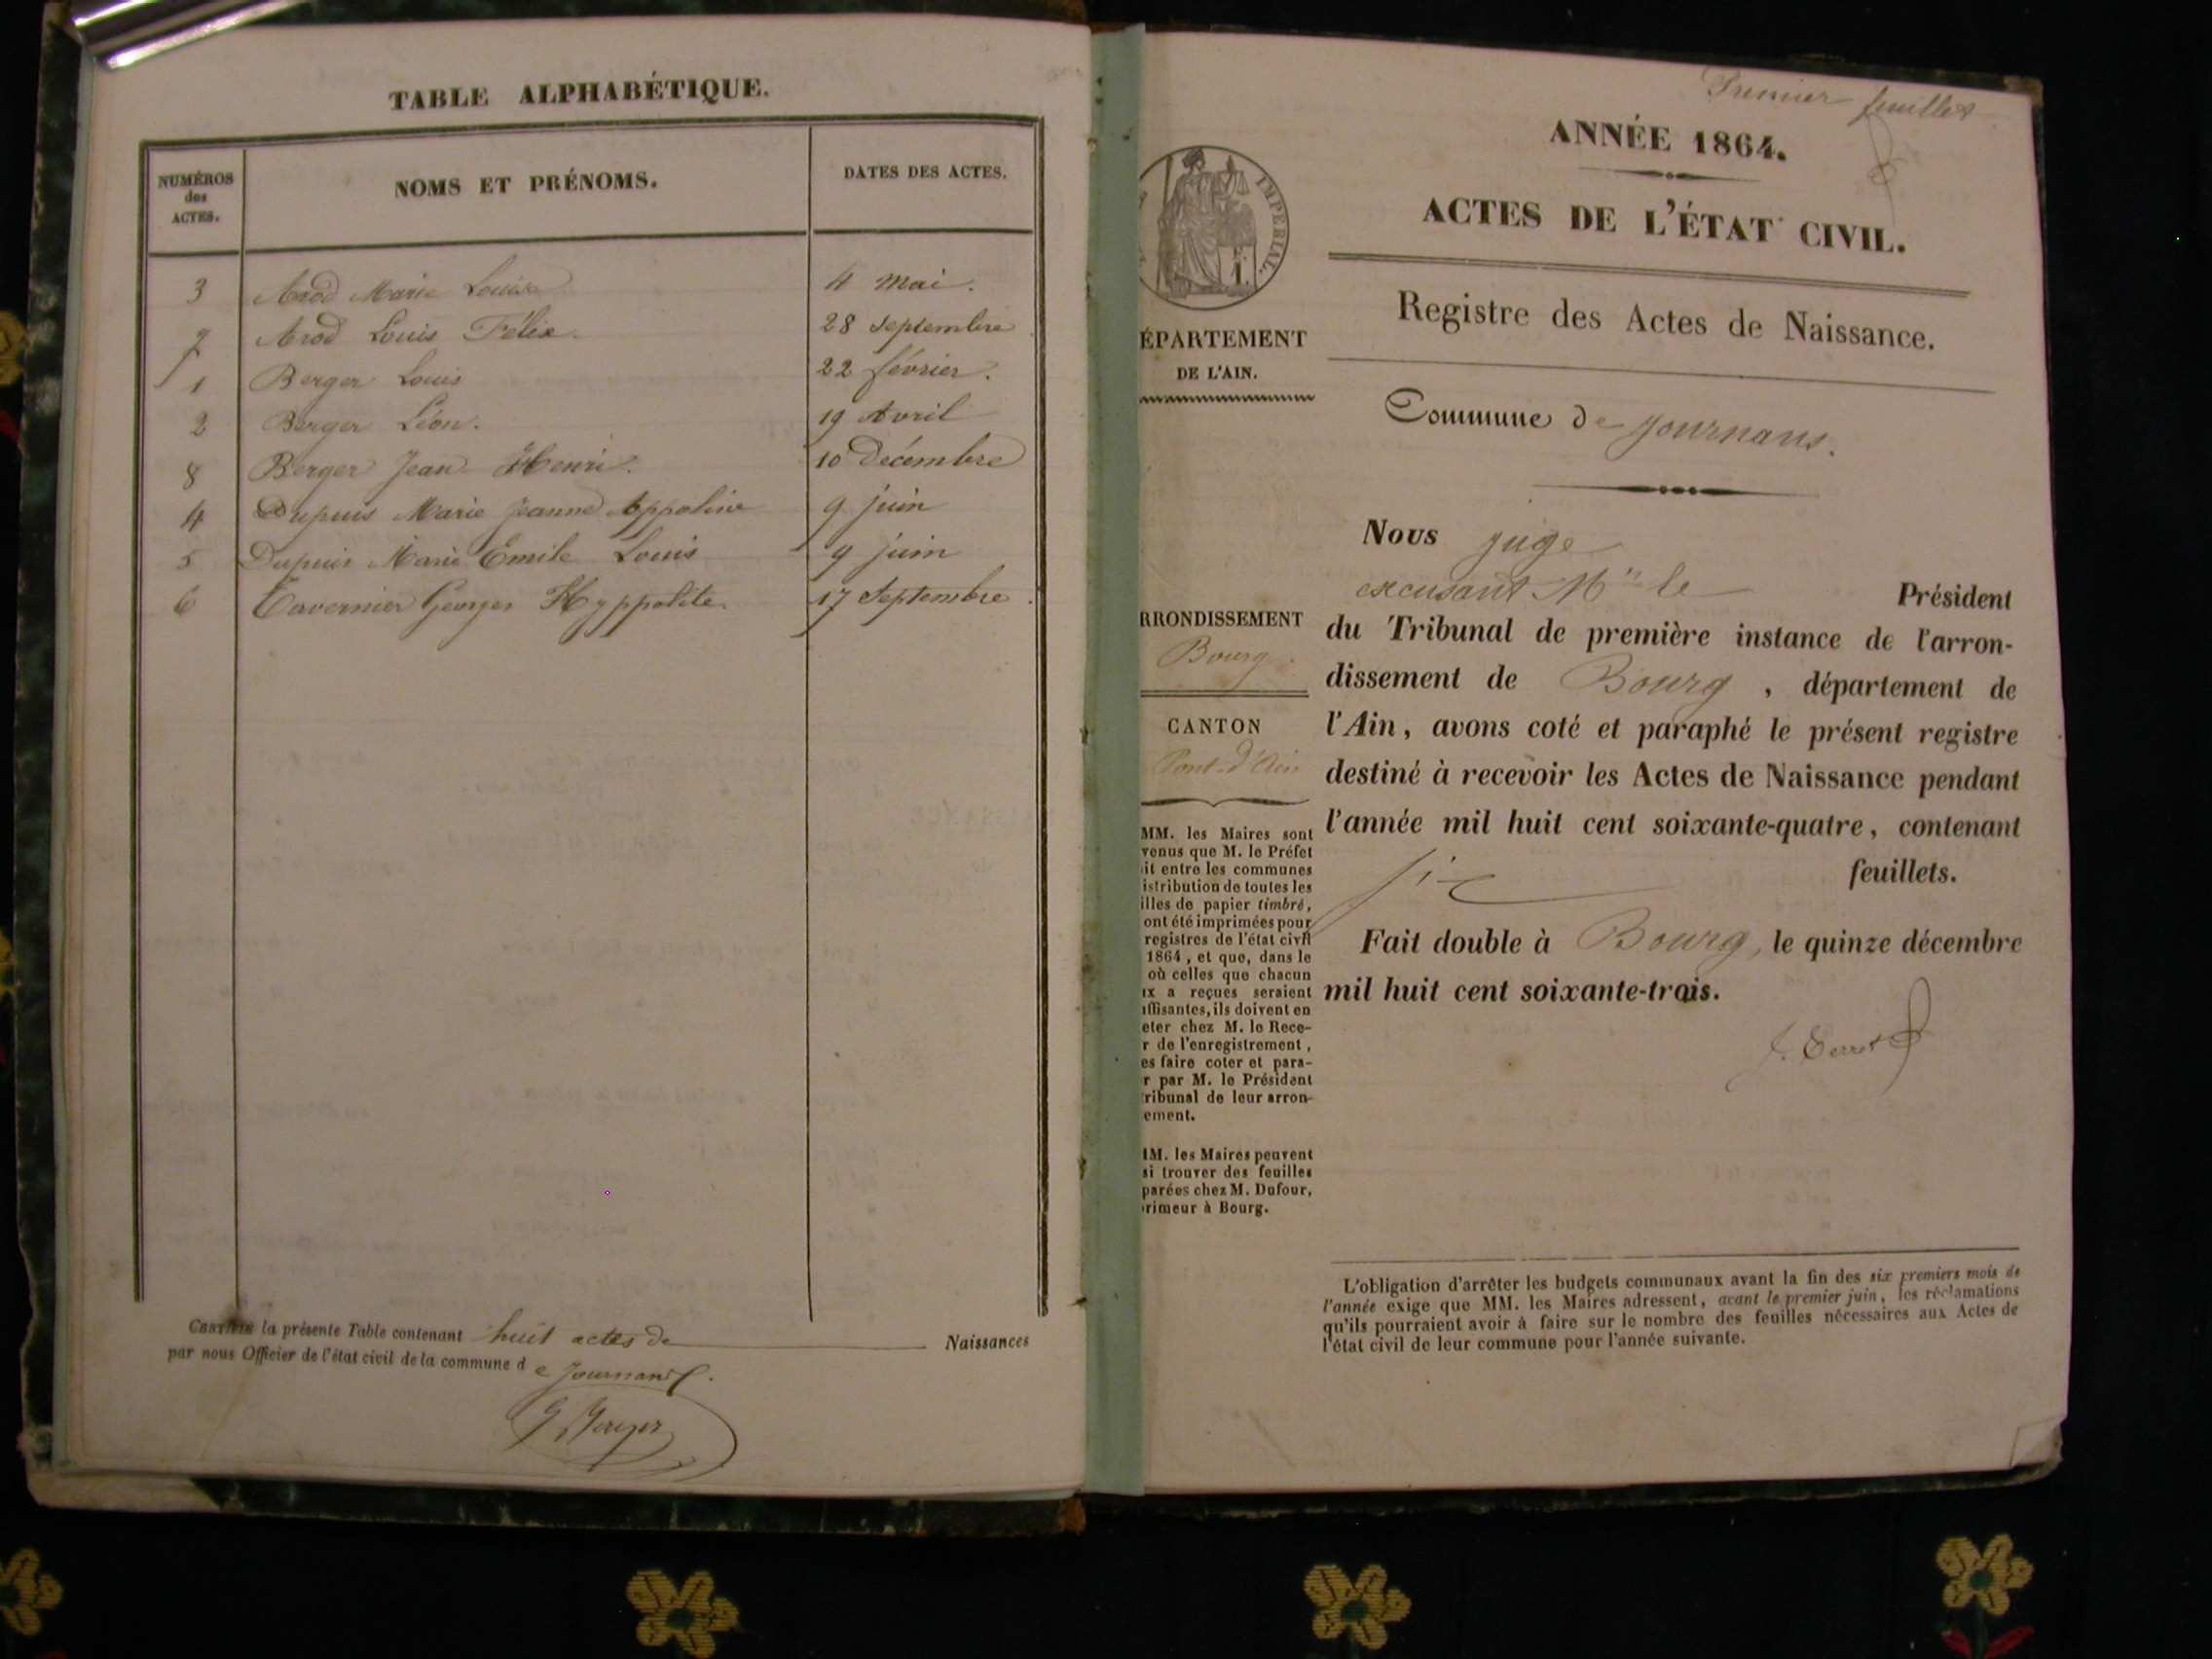 TABLE ALPHABÉTIQUE.
NUMÉROS des ACTES. NOMS ET PRÉNOMS. DATES DES ACTES.
3 Arod Marie Louise 4 Mai.
7 Arod Louis Félix. 28 Septembre
1 Berger Louis 22 février.
2 Berger Léon. 19 Avril
8 Berger Jean Henri. 10 Décembre
4 Dupuis Marie Jeanne Appoline 9 juin
5 Dupuis Marie Emile Louis 9 juin
6 Tavernier Georges Hyppolite. 17 Septembre.
CERTIFIÉ la présente Table contenant huit actes de Naissances
par nous Officier de l'état civil de la commune de Journans.
Berger
Premier feuillet
ANNÉE 1864.
ACTES DE L'ÉTAT CIVIL.
IMPERIAL.
Registre des Actes de Naissance.
ÉPARTEMENT
DE L'AIN.
Commune de Journans.
RRONDISSEMENT
Bourg.
CANTON
Pont-d'Ain
MM. les Maires sont
venus que M. le Préfet
it entre les communes
istribution de toutes les
illes de papier timbré,
ont été imprimées pour
registres de l'état civil
1864, et que, dans le
où celles que chacun
ux a reçues seraient
uffisantes, ils doivent en
eter chez M. le Rece-
r de l'enregistrement,
es faire coter et para-
r par M. le Président
tribunal de leur arron-
ement.
MM. les Maires peuvent
si trouver des feuilles
parées chez M. Dufour,
rimeur à Bourg.
Nous juge
excusant Mr le Président
du Tribunal de première instance de l'arron-
dissement de Bourg, département de
l'Ain, avons coté et paraphé le présent registre
destiné à recevoir les Actes de Naissance pendant
l'année mil huit cent soixante-quatre, contenant
six feuillets.
Fait double à Bourg, le quinze décembre
mil huit cent soixante-trois.
L'obligation d'arrêter les budgets communaux avant la fin des six premiers mois de
l'année exige que MM. les Maires adressent, avant le premier juin, les réclamations
qu'ils pourraient avoir à faire sur le nombre des feuilles nécessaires aux Actes de
l'état civil de leur commune pour l'année suivante.